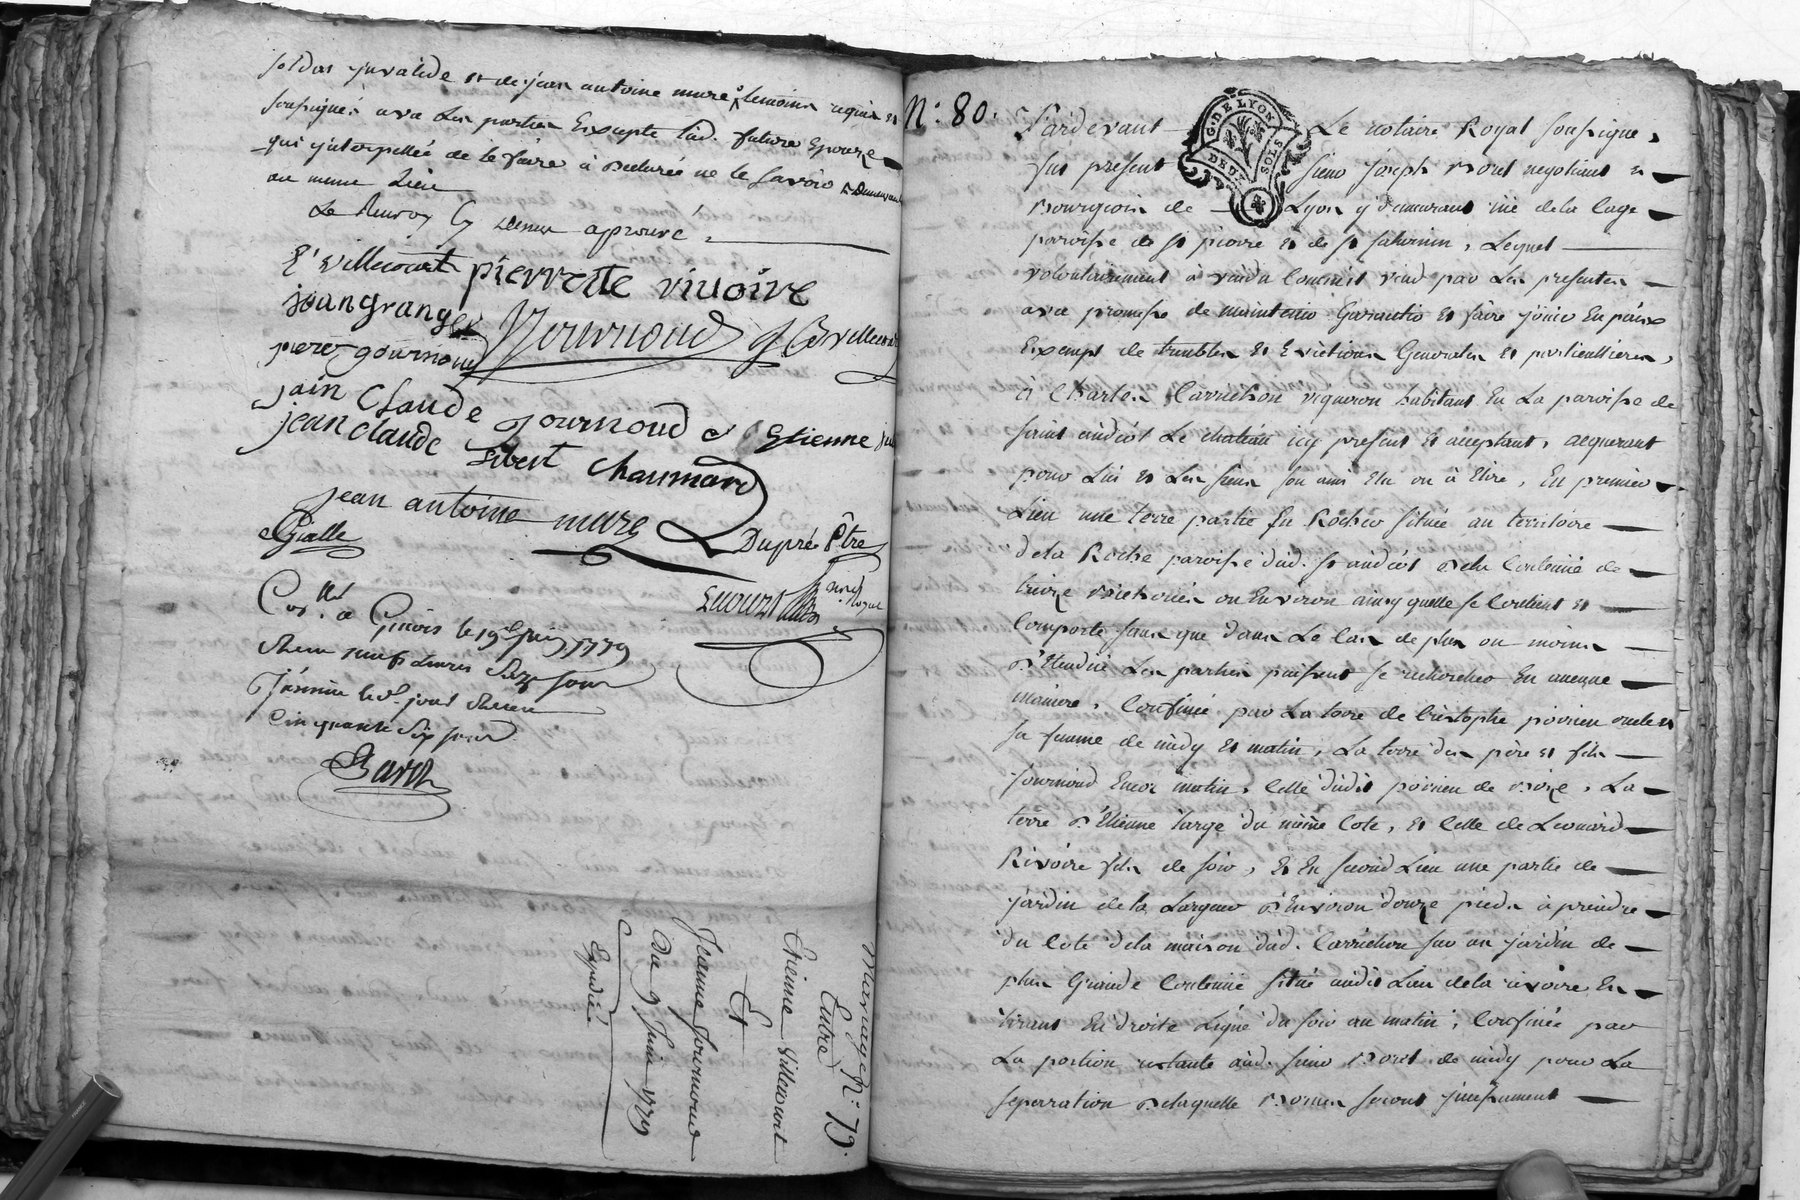 soldat invalide et de jean antoine mure temoins requis et
soussignés avec les parties Excepté lad. future Epouze
qui interpellée de le faire à declaré ne le savoir
au meme Lieu
Le Renvoy cy dessus aprouvé
E' villecourt pierrette rivoire
jean granger fournoud
piere gournoud
jain Claude gournoud Etienne
jean claude Sibert Chaumard
jean antoine mure Dupré Ptre
Gialle
Con.llé a le 19e Juin 1779
neuf livres
cinquante six sous
Mariage N: 79.
Entre
Etienne Villecourt
Et
Jeanne fournoud
Du 9 Juin 1779
Expedié
N: 80.
G. DE LYON
DEUX SOLS
Pardevant Le notaire Royal soussigné,
fut present sieur joseph Morel negotiant et
Bourgeois de Lyon y demeurant rüe de la Cage
paroisse de st pierre et de st saturnin, Lequel
volontairement à vendu comme il vend par Les presentes
avec promesse de maintenir Garantir et faire jouir En paix
Exempt de troubles et Evictions Generales et particullieres,
à Charles Carrichon vigneron habitant En La paroisse de
saint andéol Le chateau icy present et acceptant, acquerant
pour Lui et Les siens son ami Elu ou à Elire, En premier
Lieu une terre partie En Rocher située au territoire
de la Roche paroisse dud. st andéol de la Contenüe de
treize bicherées ou Environ ainsy quelle se Contient et
Comporte sans que dans Le Cas de plus ou moins
d'Etendüe Les parties puissent se rechercher En aucune
maniere, Confinée par La terre de Cristophe poirieu oncle et
sa femme de midy et matin, La terre des père et fils
fournoud Encor matin, Celle dudit poirieu de bize, La
terre d'Etienne targe du même Coté, et Celle de Leonard
Rivoire fils de soir, Et En second Lieu une partie de
jardin de la Largeur d'Environ douze pieds à prendre
du Coté de la maison dud. Carrichon sur un jardin de
plus Grande Contenüe situé audit Lieu de la rivoire En
tirant En droite Ligne du soir au matin, Confinée par
La portion restante aud. sieur Morel de midy pour La
separration de laquelle Bornes seront